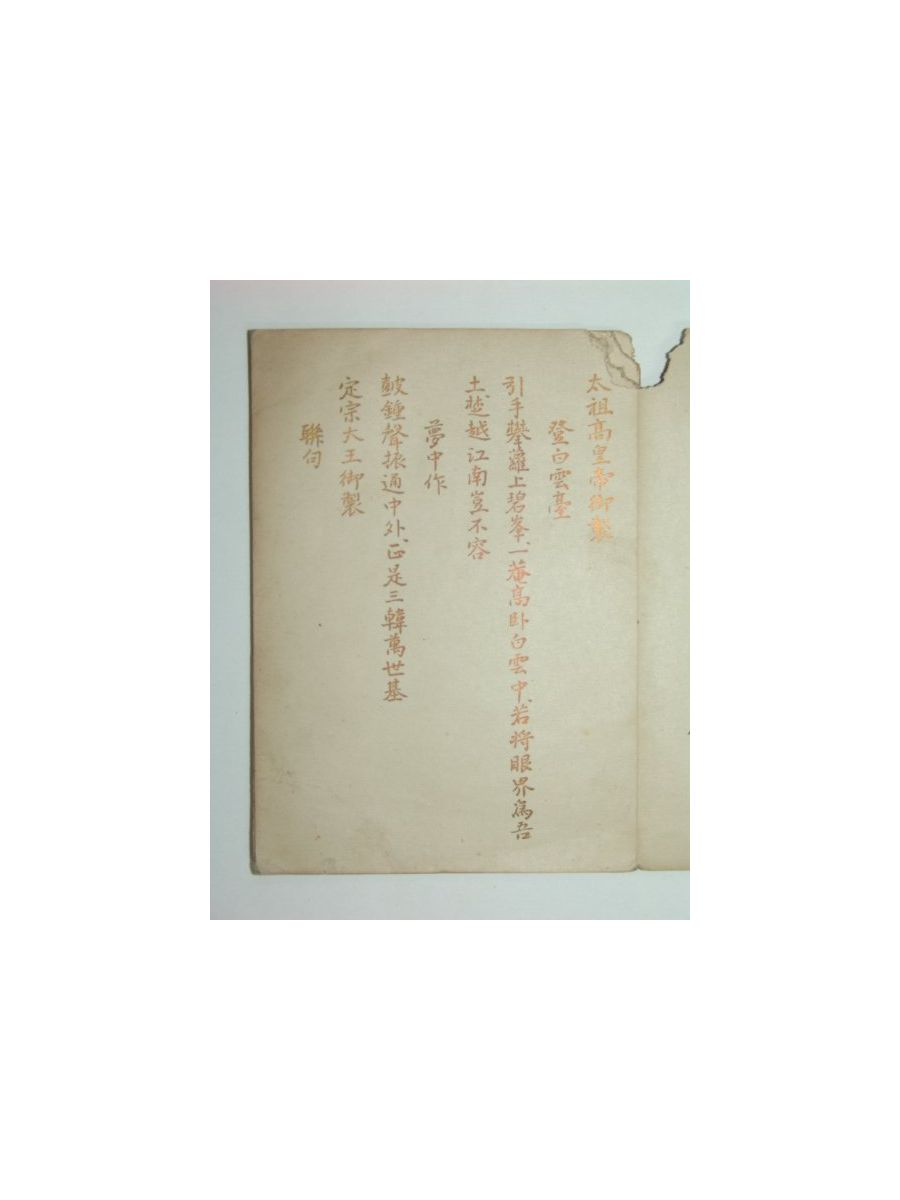 太祖高皇帝御製
登白雲臺
引手攀蘿上碧峯、一菴高卧白雲中、若將眼界為吾
土、楚越江南豈不容
夢中作
鼓鍾聲振通中外、正是三韓萬世基
定宗大王御製
聯句